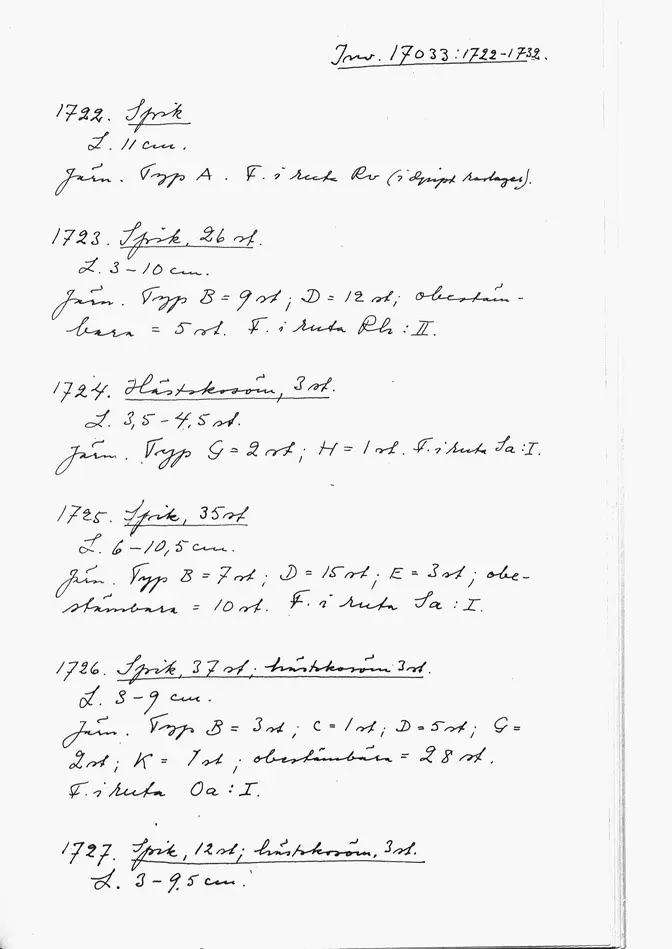 Inv. 17033:1722-1732.
1722. Spik
L. 11 cm.
Järn. Typ A. F. i ruta Rv (i djupt raslager).
1723. Spik, 26 st.
L. 3-10 cm.
Järn. Typ B = 9 st; D = 12 st; obestäm-
bara = 5 st. F. i ruta Rh:II.
1724. Hästskosöm, 3 st.
L. 3,5-4,5 st.
Järn. Typ G = 2 st; H = 1 st. F. i ruta Sa:I.
1725. Spik, 35 st
L. 6-10,5 cm.
Järn. Typ B = 7 st; D = 15 st; E = 3 st; obe-
stämbara = 10 st. F. i ruta Sa:I.
1726. Spik, 37 st; hästskosöm 3 st.
L. 3-9 cm.
Järn. Typ B = 3 st; C = 1 st; D = 5 st; G =
2 st; K = 1 st; obestämbara = 28 st.
F. i ruta Oa:I.
1727. Spik, 12 st; hästskosöm, 3 st.
L. 3-9,5 cm.